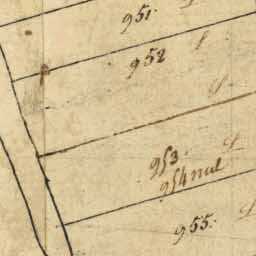 951.
952
953.
954 nul
955.